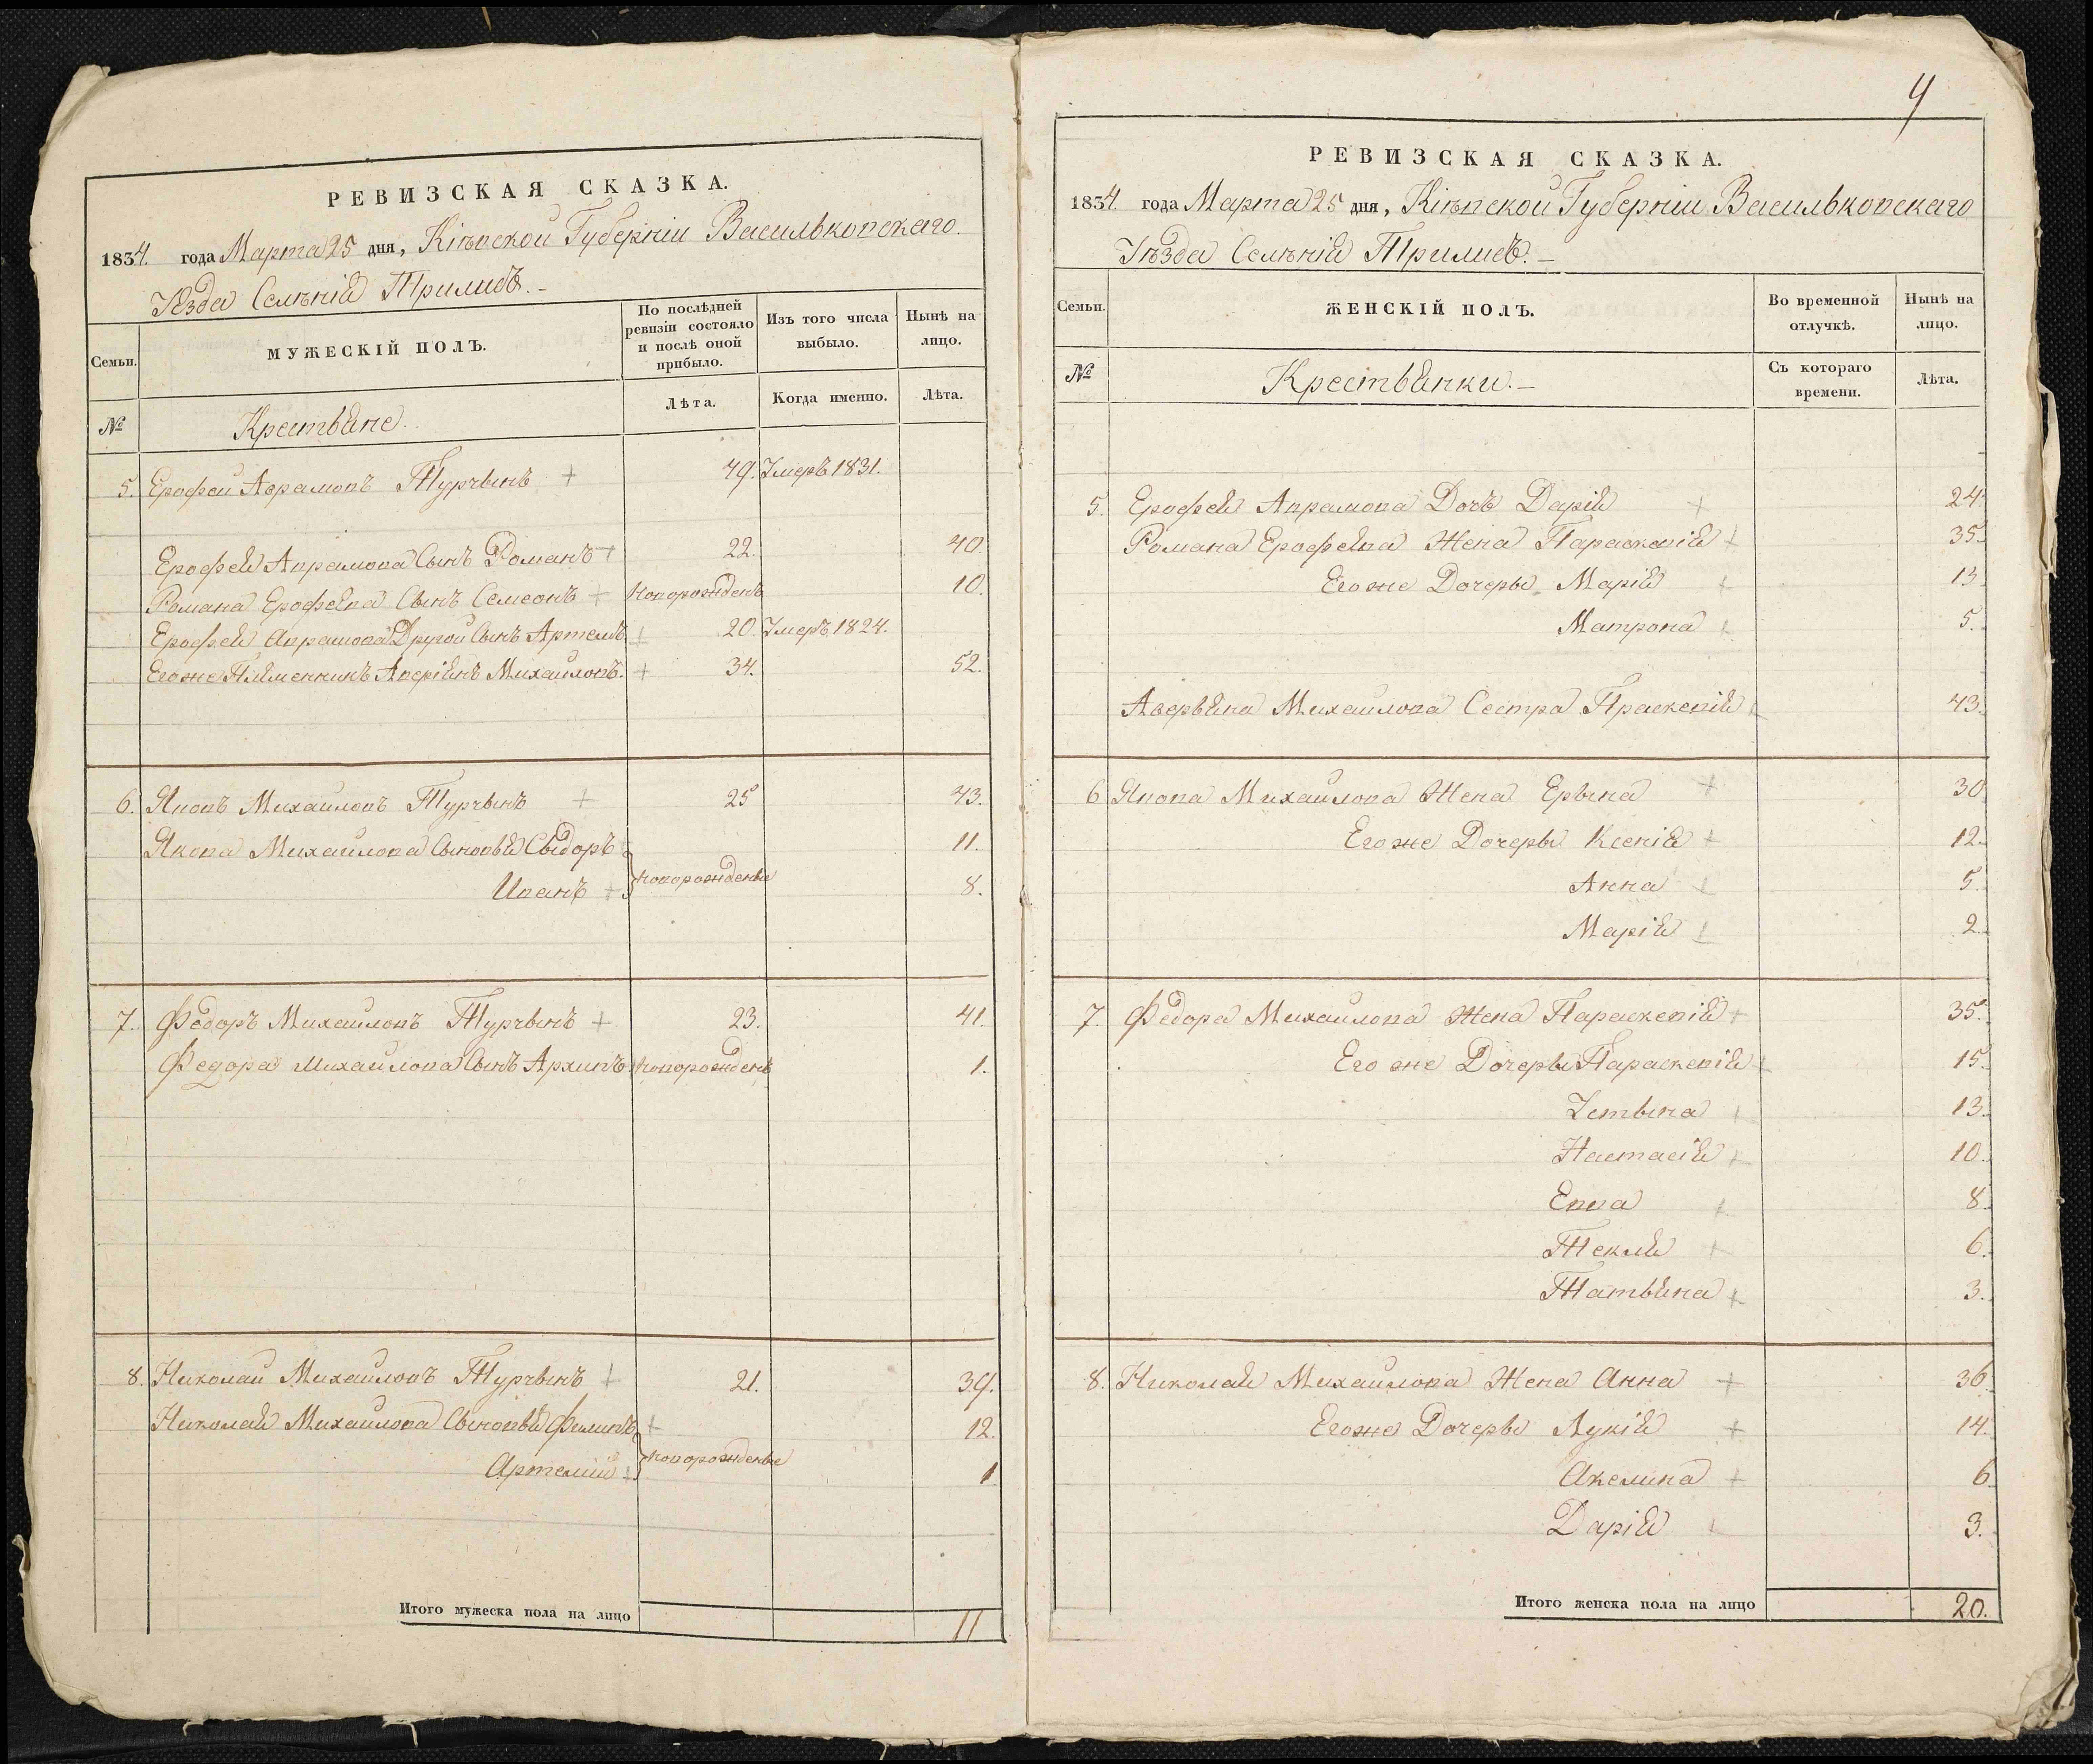 РЕВИЗСКАЯ СКАЗКА.
1834. года Марта 25 дня, Кіевской Губерніи Васильковскаго.
Уѣзда Селѣнія Трилисъ. -
Семьи.
МУЖЕСКІЙ ПОЛЪ.
По послѣдней ревизіи состояло и послѣ оной прибыло.
Изъ того числа выбыло.
Нынѣ на лицо.
№
Крестьяне.
Лѣта.
Когда именно.
Лѣта.
5. Ерофей Аврамовъ Турчынъ + 49. Умеръ 1831.
Ерофея Аврамова Сынъ Романъ + 22. 40.
Романа Ерофеява Сынъ Семеонъ + Новорожденъ 10.
Ерофея Аврамова Другой Сынъ Артемъ + 20. Умеръ 1824.
Его же Племенникъ Аверіянъ Михайловъ. + 34. 52.
6. Яковъ Михайловъ Турчынъ + 25 43.
Якова Михайлова Сыновья Сыдоръ 11.
Иванъ + новорожденые 8.
7. Федоръ Михайловъ Турчынъ + 23. 41.
Федора Михайлова Сынъ Архипъ новорожденъ 1.
8. Николай Михайловъ Турчынъ + 21. 39.
Николая Михайлова Сыновья Филипъ + 12.
Артемій + новорожденые 1
Итого мужеска пола на лицо 11
4
РЕВИЗСКАЯ СКАЗКА.
1834. года Марта 25 дня, Кіевской Губерніи Васильковскаго
Уѣзда Селѣнія Трилисъ. -
Семьи.
ЖЕНСКІЙ ПОЛЪ.
Во временной отлучкѣ.
Нынѣ на лицо.
№
Крестьянки. -
Съ котораго времени.
Лѣта.
5. Ерофея Аврамова Дочъ Дарія + 24.
Романа Ерофеява Жена Параскевія + 35.
Его же Дочеры Марія + 13
Матрона + 5.
Аверьяна Михайлова Сестра Праскевія + 43.
6 Якова Михайлова Жена Ерына + 30
Его же Дочеры Ксенія + 12.
Анна + 5.
Марія + 2.
7. Федора Михайлова Жена Параскевія + 35.
Его же Дочеры Параскевія + 15.
Устына + 13.
Настасія + 10.
Евва + 8.
Текля + 6.
Татьяна + 3.
8. Николая Михайлова Жена Анна + 36
Его же Дочеры Лукія + 14.
Акелина + 6.
Дарія + 3.
Итого женска пола на лицо 20.